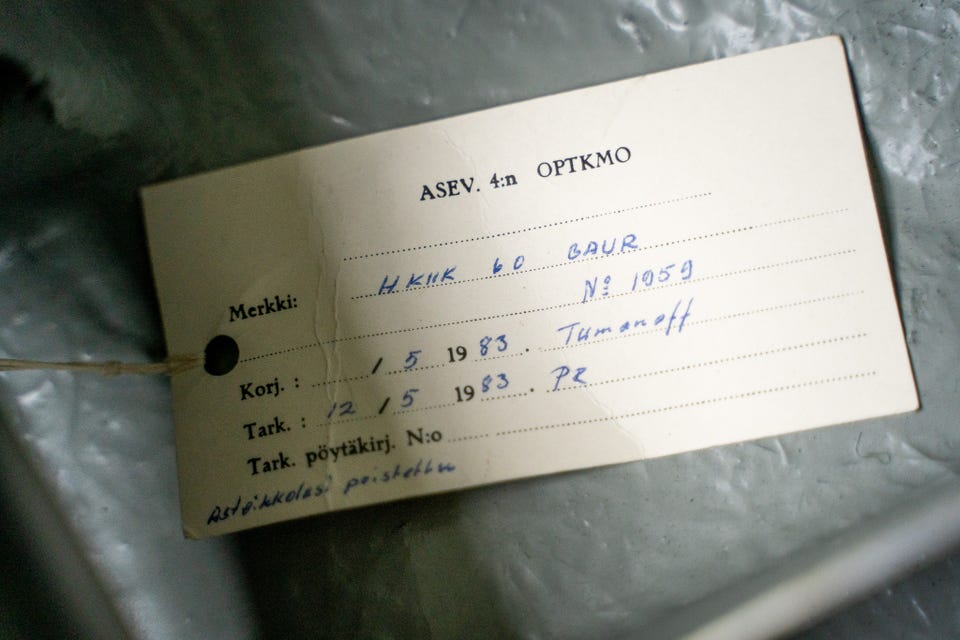 ASEV. 4:n OPTKMO
Merkki: HKIIK 60 BAUR
Nº 1959
Korj. : / 5 1983. Tumanoff
Tark. : 12 / 5 1983. PR
Tark. pöytäkirj. N:o
Asteikkolasi poistettu